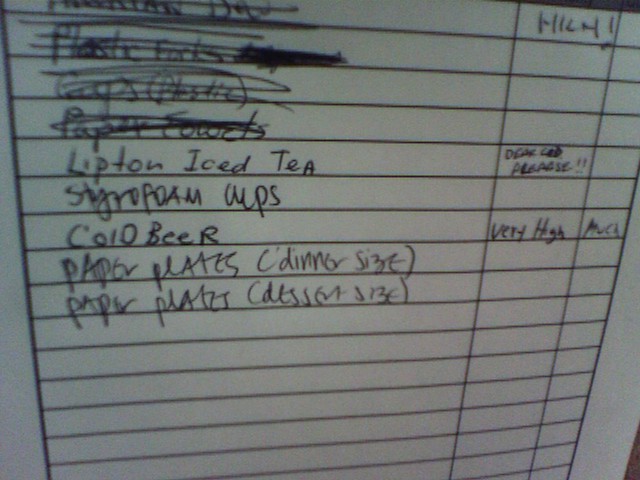 Mountain Dew HIGH!
Plastic Forks
Cups (Plastic)
Paper Towels
Lipton Iced Tea DEAR GOD PLEASE!!
Styrofoam cups
Cold Beer Very High Much
PAPER PLATES (dinner size)
PAPER PLATES (dessert size)